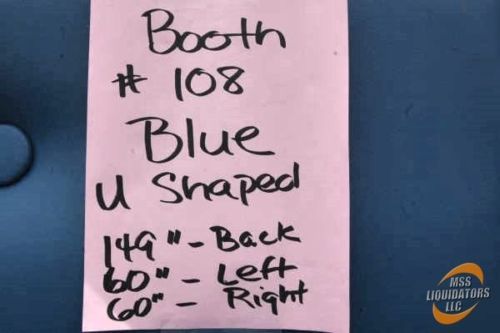 Booth
# 108
Blue
U Shaped
149" - Back
60" - Left
60" - Right
MSS
LIQUIDATORS
LLC